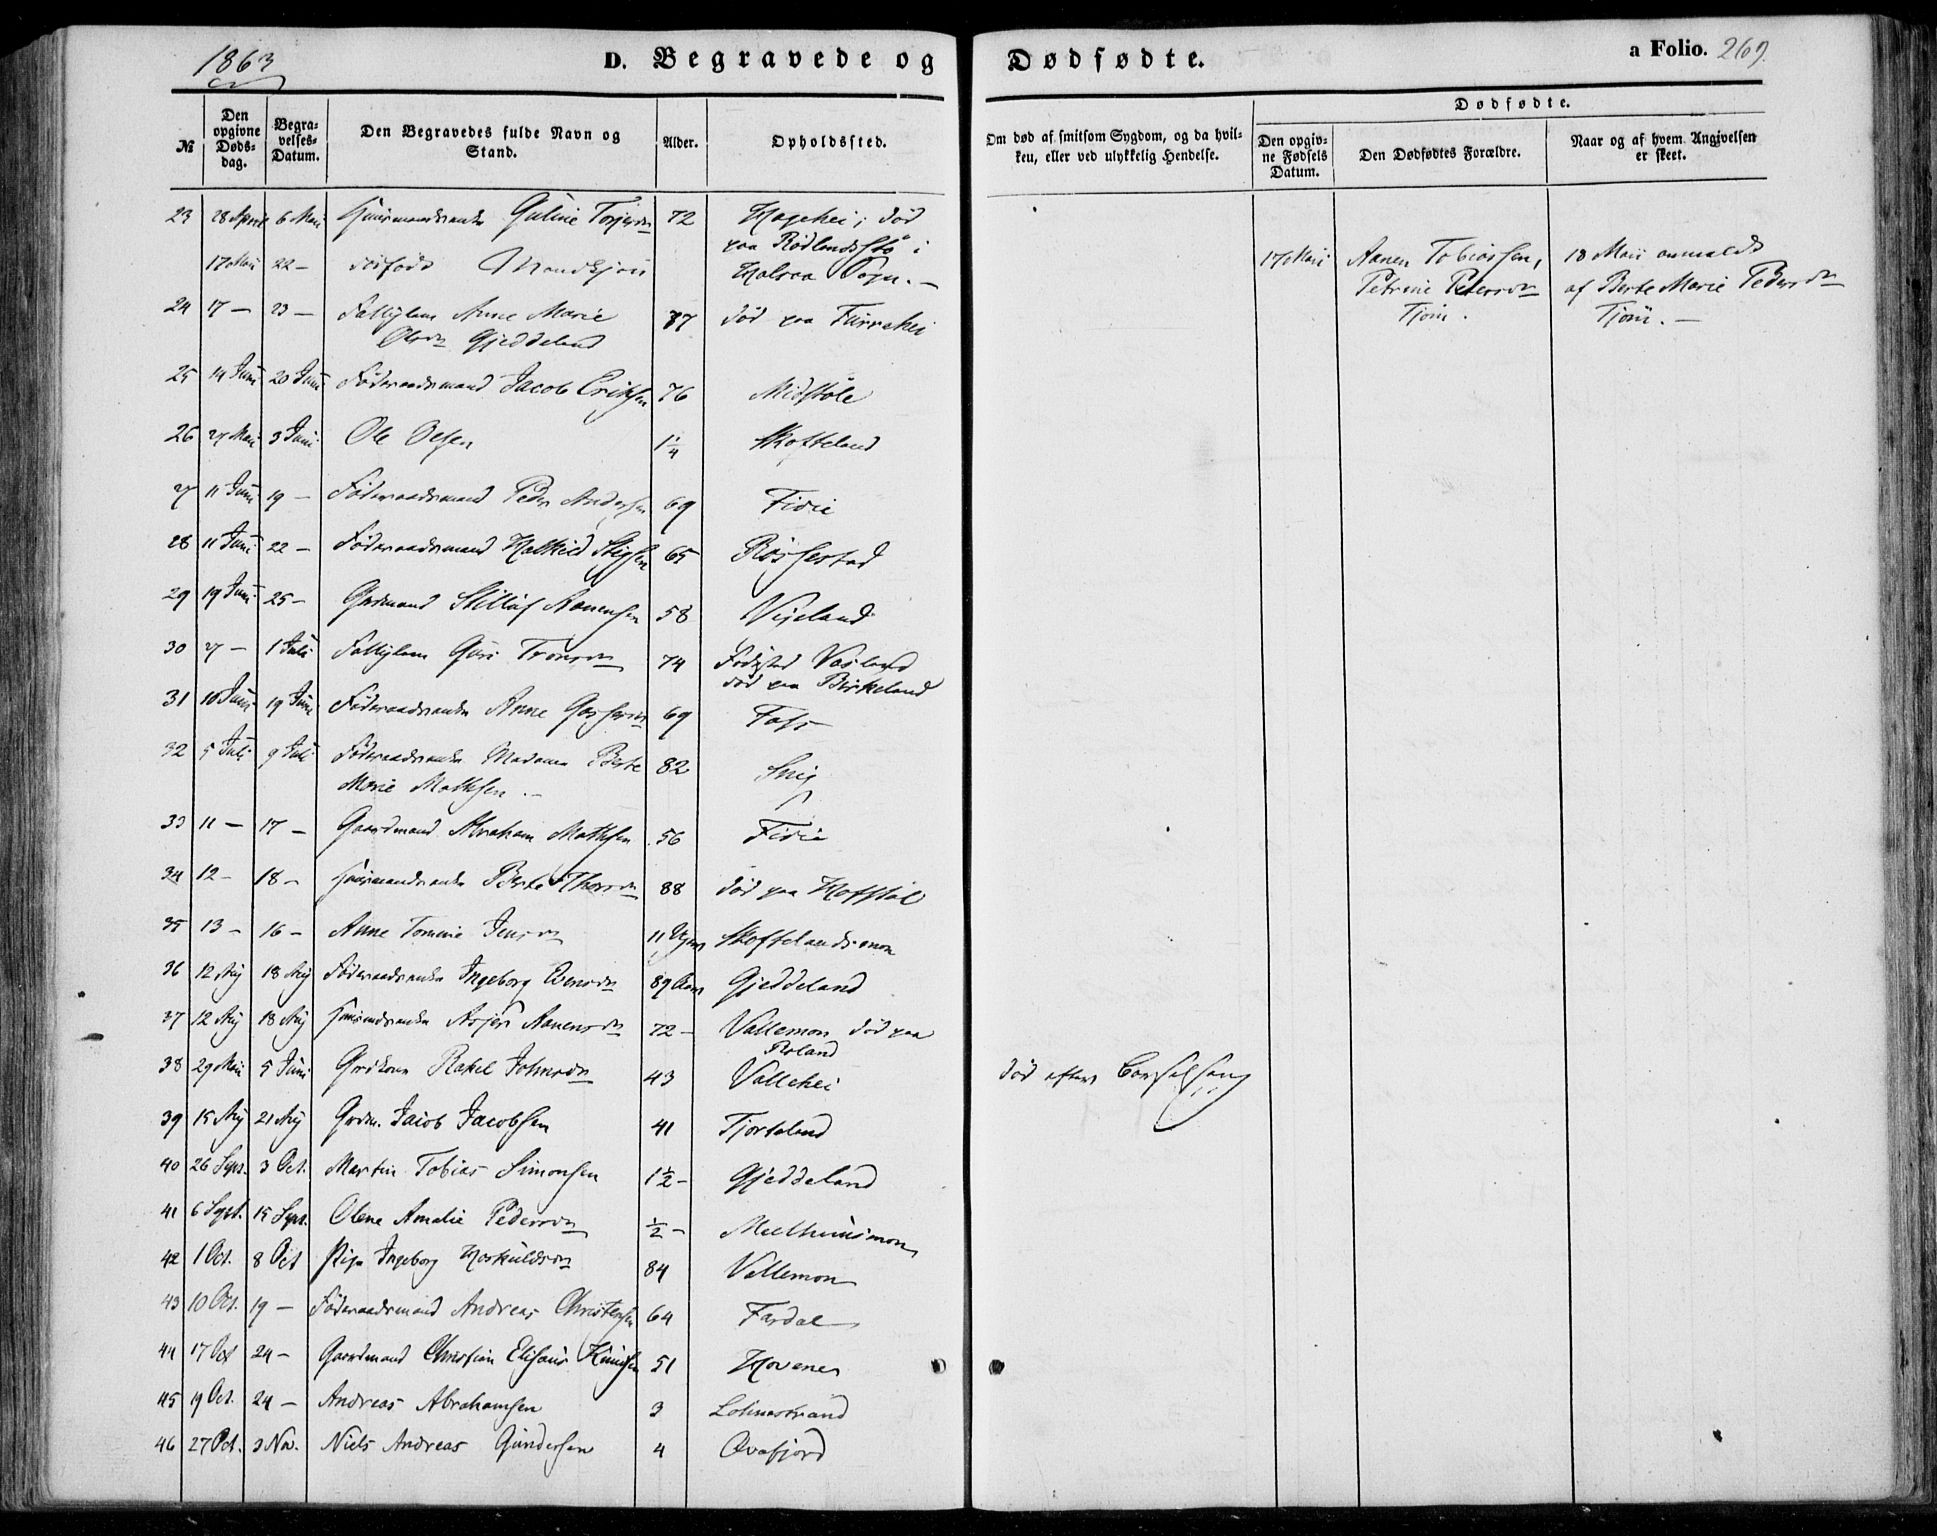 1863
D. Begravede og Dødfødte.
a Folio. 269.
№ Den opgivne Døds-dag. Begra-velses-Datum. Den Begravedes fulde Navn og Stand. Alder. Opholdssted. Om død af smitsom Sygdom, og da hvil-ken, eller ved ulykkelig Hendelse. Dødfødte. Den opgiv-ne Fødsels Datum. Den Dødfødtes Forældre. Naar og af hvem Angivelsen er skeet.
23 28 April 6 Mai Huusmandsenke Guline 72 død
paa i
17 Mai 22 – dødfødt Halsaa Sogn. –
17 Mai Aanen Tobiassen, 18 Mai anmeldt
Petrine Pedersdr af Berte Marie Pedersdr
Tjom. Tjom. –
24 17 – 23 – Fattiglem Anne Marie 77 død paa
Olsdr Gjeddeland
25 14 Juni 20 Juni Føderaadsmand Jacob Eriksen 76 Midstøle
26 27 Mai 3 Juni Ole Olsen 1¼ Skofteland
27 11 Juni 19 – Føderaadsmand Peder Andersen 69 Fidie
28 11 Juni 22 – Føderaadsmand 65 Røssestad
29 19 Juni 25 – Grdmand Aanensen 58 Vigeland
30 27 – 1 Juli Fattiglem Guri Tronsdr 74 Fødested
død paa Birkeland
31 10 Juni 19 Juni Føderaadsenke Anne 69 Foss
32 5 Juli 9 Juli Føderaadsenke Madame Berte 82 Snig
Marie Mathsen. –
33 11 – 17 – Gaardmand Abraham Mathsen 56 Fidie
34 12 – 18 – Huusmandsenke Berte 88 død paa
35 13 – 16 – Anne Tomine Jensdr 11 Uger Skoftelandsmon
36 12 Aug 18 Aug Føderaadsenke Ingeborg Evensdr 89 Aar Gjeddeland
37 12 Aug 18 Aug Asjer Aanensdr 72 – Vallemon død paa
38 29 Mai 5 Juni Grdkone Rakel Johnsdr 43 Vallehei død efter Barselseng
39 15 Aug 21 Aug Grdm. Jacob Jacobsen 41 Tjorteland
40 26 Sept. 3 Oct. Martin Tobias Simonsen 1½ – Gjeddeland
41 6 Sept. 15 Sept. Olene Amalie Pedersdr ½ –
42 1 Oct. 8 Oct Pige Ingeborg 84 Vallemon
43 10 Oct. 19 – Føderaadsmand Andreas Christensen 64 Fardal
44 17 Oct 24 – Gaardmand Christian Elisæus Knudsen 51 Hovenes
45 19 Oct. 24 – Andreas Abrahamsen 3
46 27 Oct. 3 Nov. Niels Andreas Gundersen 4 Qvafjord